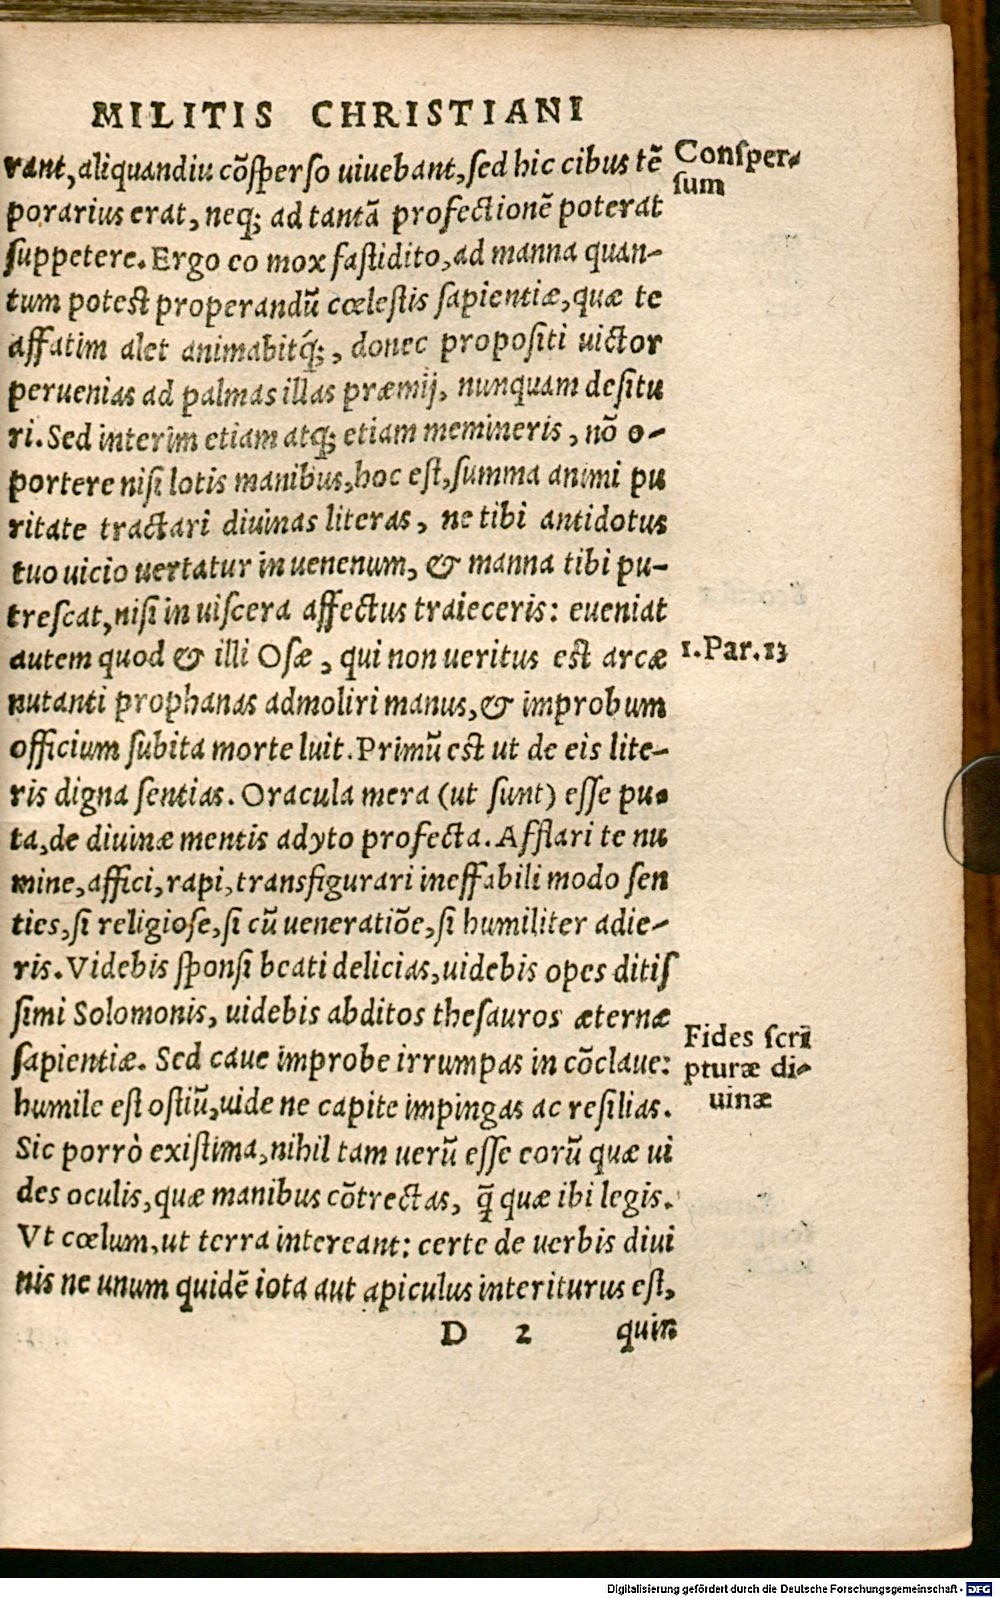 MILITIS CHRISTIANI
rant, aliquandiu cõsperso uiuebant, sed hic cibus tẽ
Consper-
sum
porarius erat, neq; ad tantã profectionẽ poterat
suppetere. Ergo eo mox fastidito, ad manna quan-
tum potest properandũ cœlestis sapientiæ, quæ te
affatim alet animabitq́;, donec propositi uictor
peruenias ad palmas illas præmij, nunquam desitu
ri. Sed interim etiam atq; etiam memineris, nõ o-
portere nisi lotis manibus, hoc est, summa animi pu
ritate tractari diuinas literas, ne tibi antidotus
tuo uicio uertatur in uenenum, & manna tibi pu-
trescat, nisi in uiscera affectus traieceris: eueniat
autem quod & illi Osæ, qui non ueritus est arcæ
1. Par. 13
nutanti prophanas admoliri manus, & improbum
officium subita morte luit. Primũ est ut de eis lite-
ris digna sentias. Oracula mera (ut sunt) esse pu-
ta, de diuinæ mentis adyto profecta. Afflari te nu
mine, affici, rapi, transfigurari ineffabili modo sen
ties, si religiose, si cũ ueneratiõe, si humiliter adie-
ris. Videbis sponsi beati delicias, uidebis opes ditis
simi Solomonis, uidebis abditos thesauros æternæ
sapientiæ. Sed caue improbe irrumpas in cõclaue:
Fides scri
pturæ di-
uinæ
humile est ostiũ, uide ne capite impingas ac resilias.
Sic porrò existima, nihil tam uerũ esse eorũ quæ ui
des oculis, quæ manibus cõtrectas, q̃ quæ ibi legis.
Vt cœlum, ut terra intereant: certe de uerbis diui
nis ne unum quidẽ iota aut apiculus interiturus est,
D 2 quin
Digitalisierung gefördert durch die Deutsche Forschungsgemeinschaft - DFG